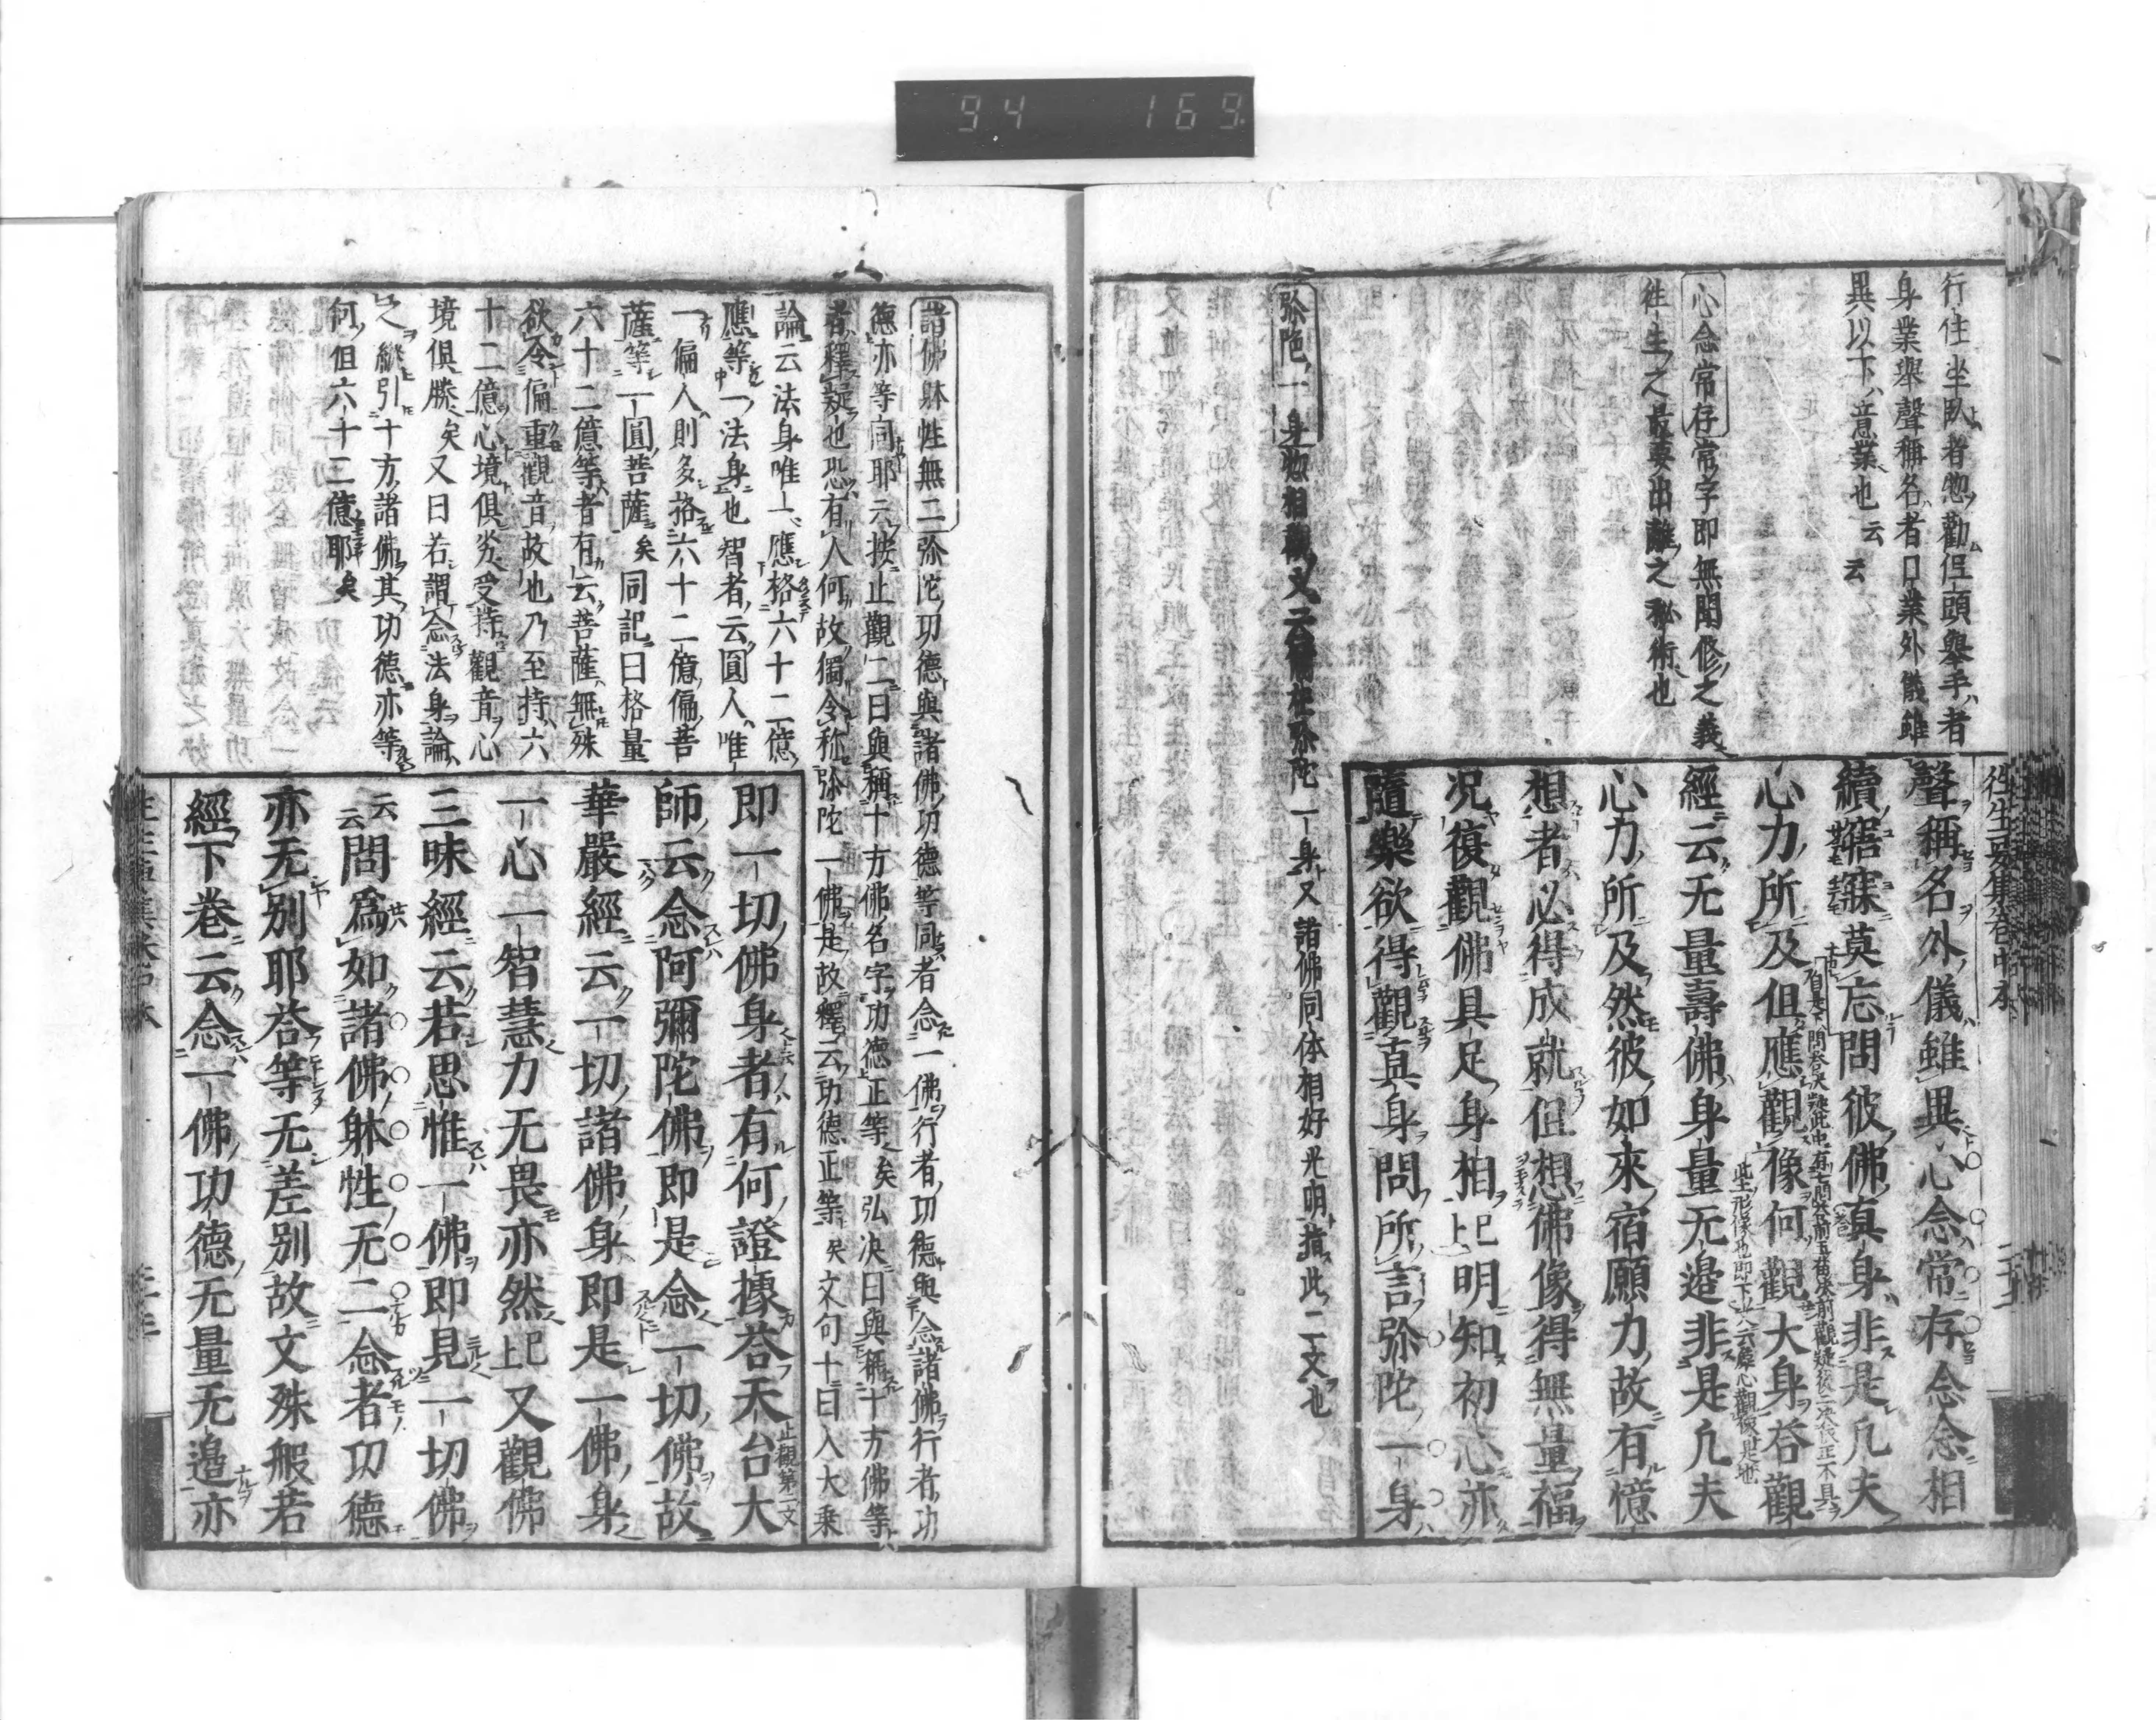 94 169
行住坐臥者惣勸但頭舉手者
身業舉聲稱名者口業外儀雖
異以下意業也云云
心念常存常字即無間修之義
往生之最要出離之秘術也
弥陀一身惣相觀
弥陀一身又諸佛同体相好光明指此二文也
往生要集卷中本
聲稱名外儀雖異心念常存念念相
續寤寐莫忘問彼佛真身非是凡夫
心力所及但應觀像何觀大身荅觀
經云无量壽佛身量无邊非是凡夫
心力所及然彼如來宿願力故有憶
想者必得成就但想佛像得無量福
况復觀佛具足身相上已明知初心亦
隨樂欲得觀真身問所言弥陀一身
諸佛躰性無二弥陀功德與諸佛功德等同者念一佛行者功德與念諸佛行者功
德亦等同耶云按止觀二曰與稱十方佛名字功德正等矣弘决曰與稱十方佛等
者釋疑也恐有人何故獨令称弥陀一佛是故釋云功德正等矣文句十曰入大乘
論云法身唯一應格六十二億
應等一法身也智者云圓人唯
一偏人則多格六十二億偏菩
薩等一圓菩薩矣同記曰格量
六十二億等者有云菩薩無殊
欲令偏重觀音故也乃至持六
十二億心境俱劣受持觀音心
境俱勝矣又曰若謂念法身論
之縱引十方諸佛其功德亦等
何但六十二億耶矣
即一切佛身者有何證據荅天台大
止觀第二文
師云念阿彌陀佛即是念一切佛故
華嚴經云一切諸佛身即是一佛身
一心一智慧力无畏亦然上已又觀佛
三昧經云若思惟一佛即見一切佛
云云問爲如諸佛躰性无二念者功德
亦无別耶荅等无差別故文殊般若
經下卷云念一佛功德无量无邊亦